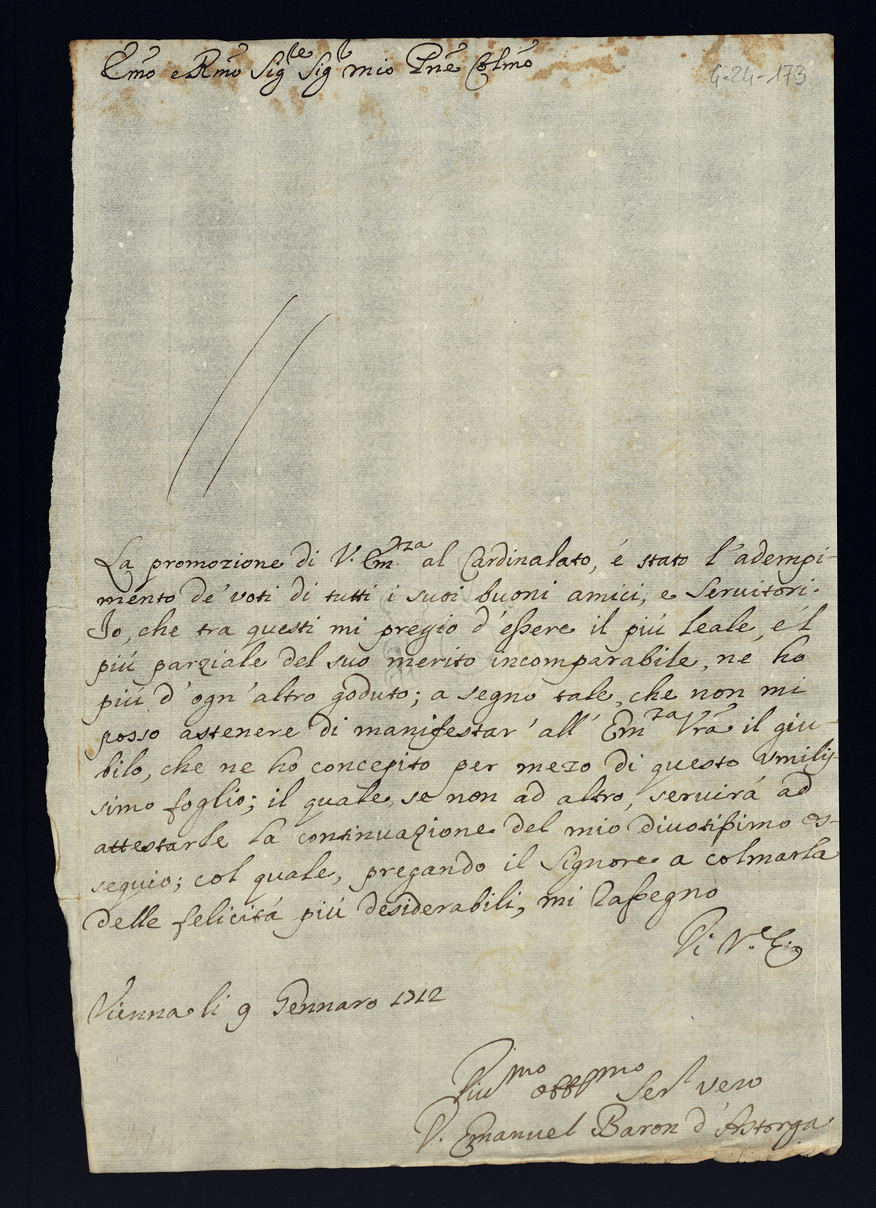 Emo e Rmo Sigre Sigr mio Pne Colmo
4-24-173
La promozione di V. Emnza al Cardinalato, é stato l'adempi-
mento de' voti di tutti i suoi buoni amici, e Seruitori.
Io, che tra questi mi pregio d'essere il piú leale, e'l
piú parziale del suo merito incomparabile, ne ho
piú d'ogn'altro goduto; a segno tale, che non mi
posso astenere di manifestar' all' Emza Vra il giu-
bilo, che ne ho concepito per mezo di questo vmilis-
simo foglio; il quale, se non ad altro, seruirá ad
attestarle la continuazione del mio diuotissimo os-
sequio; col quale, pregando il Signore a colmarla
delle felicitá piú desiderabili, mi rassegno
Di V. E.
Vienna li 9 Gennaro 1712
Diumo obblmo Ser vero
D. Emanuel Baron d'Astorga